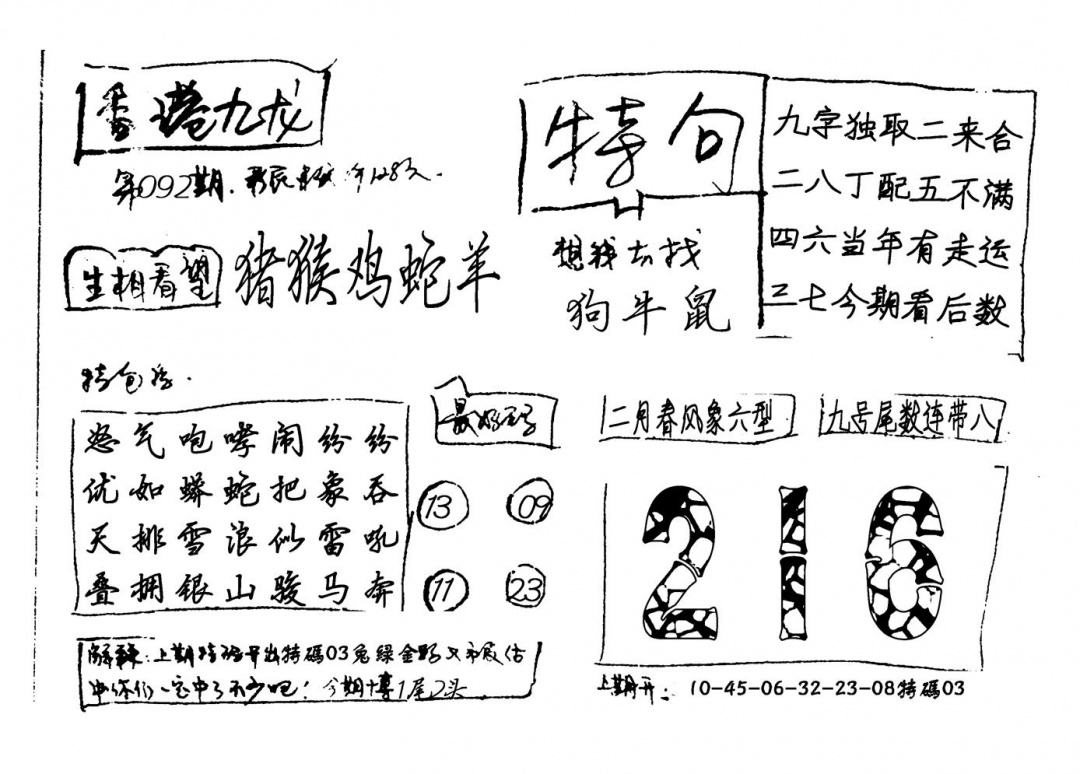 香港九龙
第092期.
生相看望 猪猴鸡蛇羊
特句
想我去找
狗牛鼠
九字独取二来合
二八丁配五不满
四六当年有走运
三七今期看后数
特包
怒气咆哮闹纷纷
优如蟒蛇把象吞
天排雪浪似雷吼
叠拥银山骏马奔
最好
13 09
11 23
二月春风象六型
九号尾数连带八
216
解释:上期特码开出特碼03兔绿金野又市辰估
中你们一定中了不少吧!今期博1尾2头
上期开: 10-45-06-32-23-08特碼03